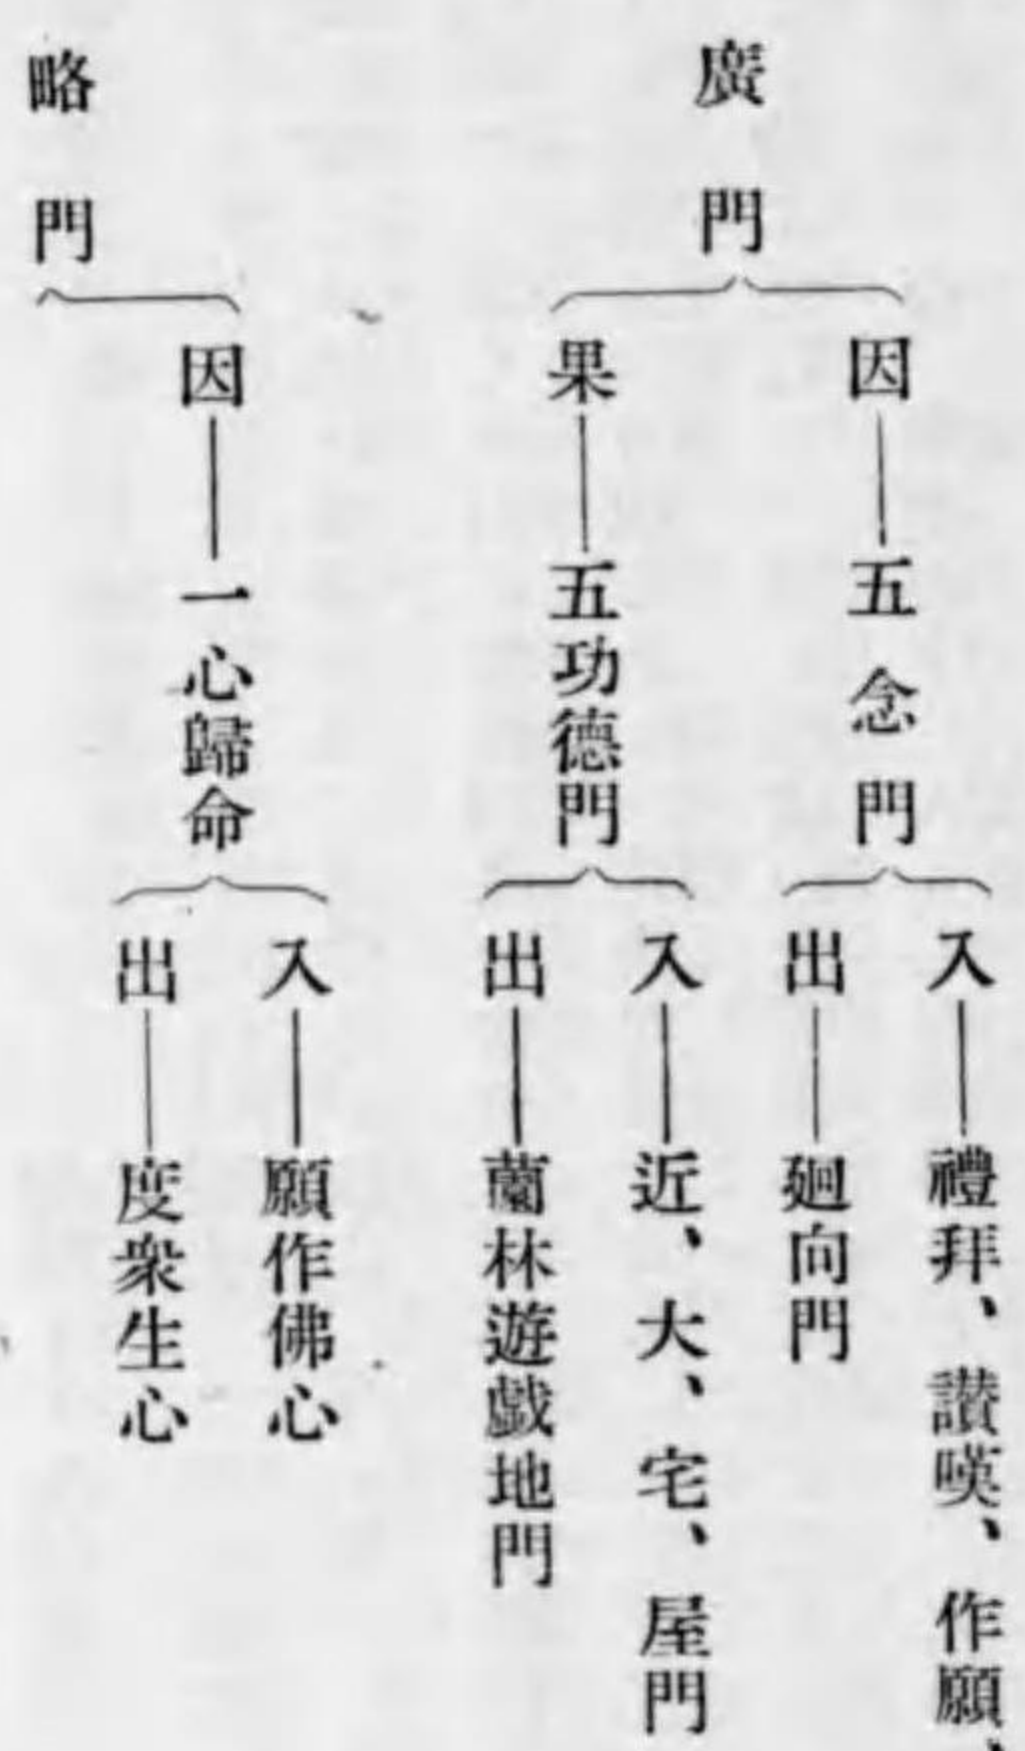 廣門
因
五念門
入
禮拜、讃嘆、作願、
出
廻向門
果
五功德門
入
近、大、宅、屋門
出
蘭林遊戯地門
略門
因
一心歸命
入
願作佛心
出
度衆生心